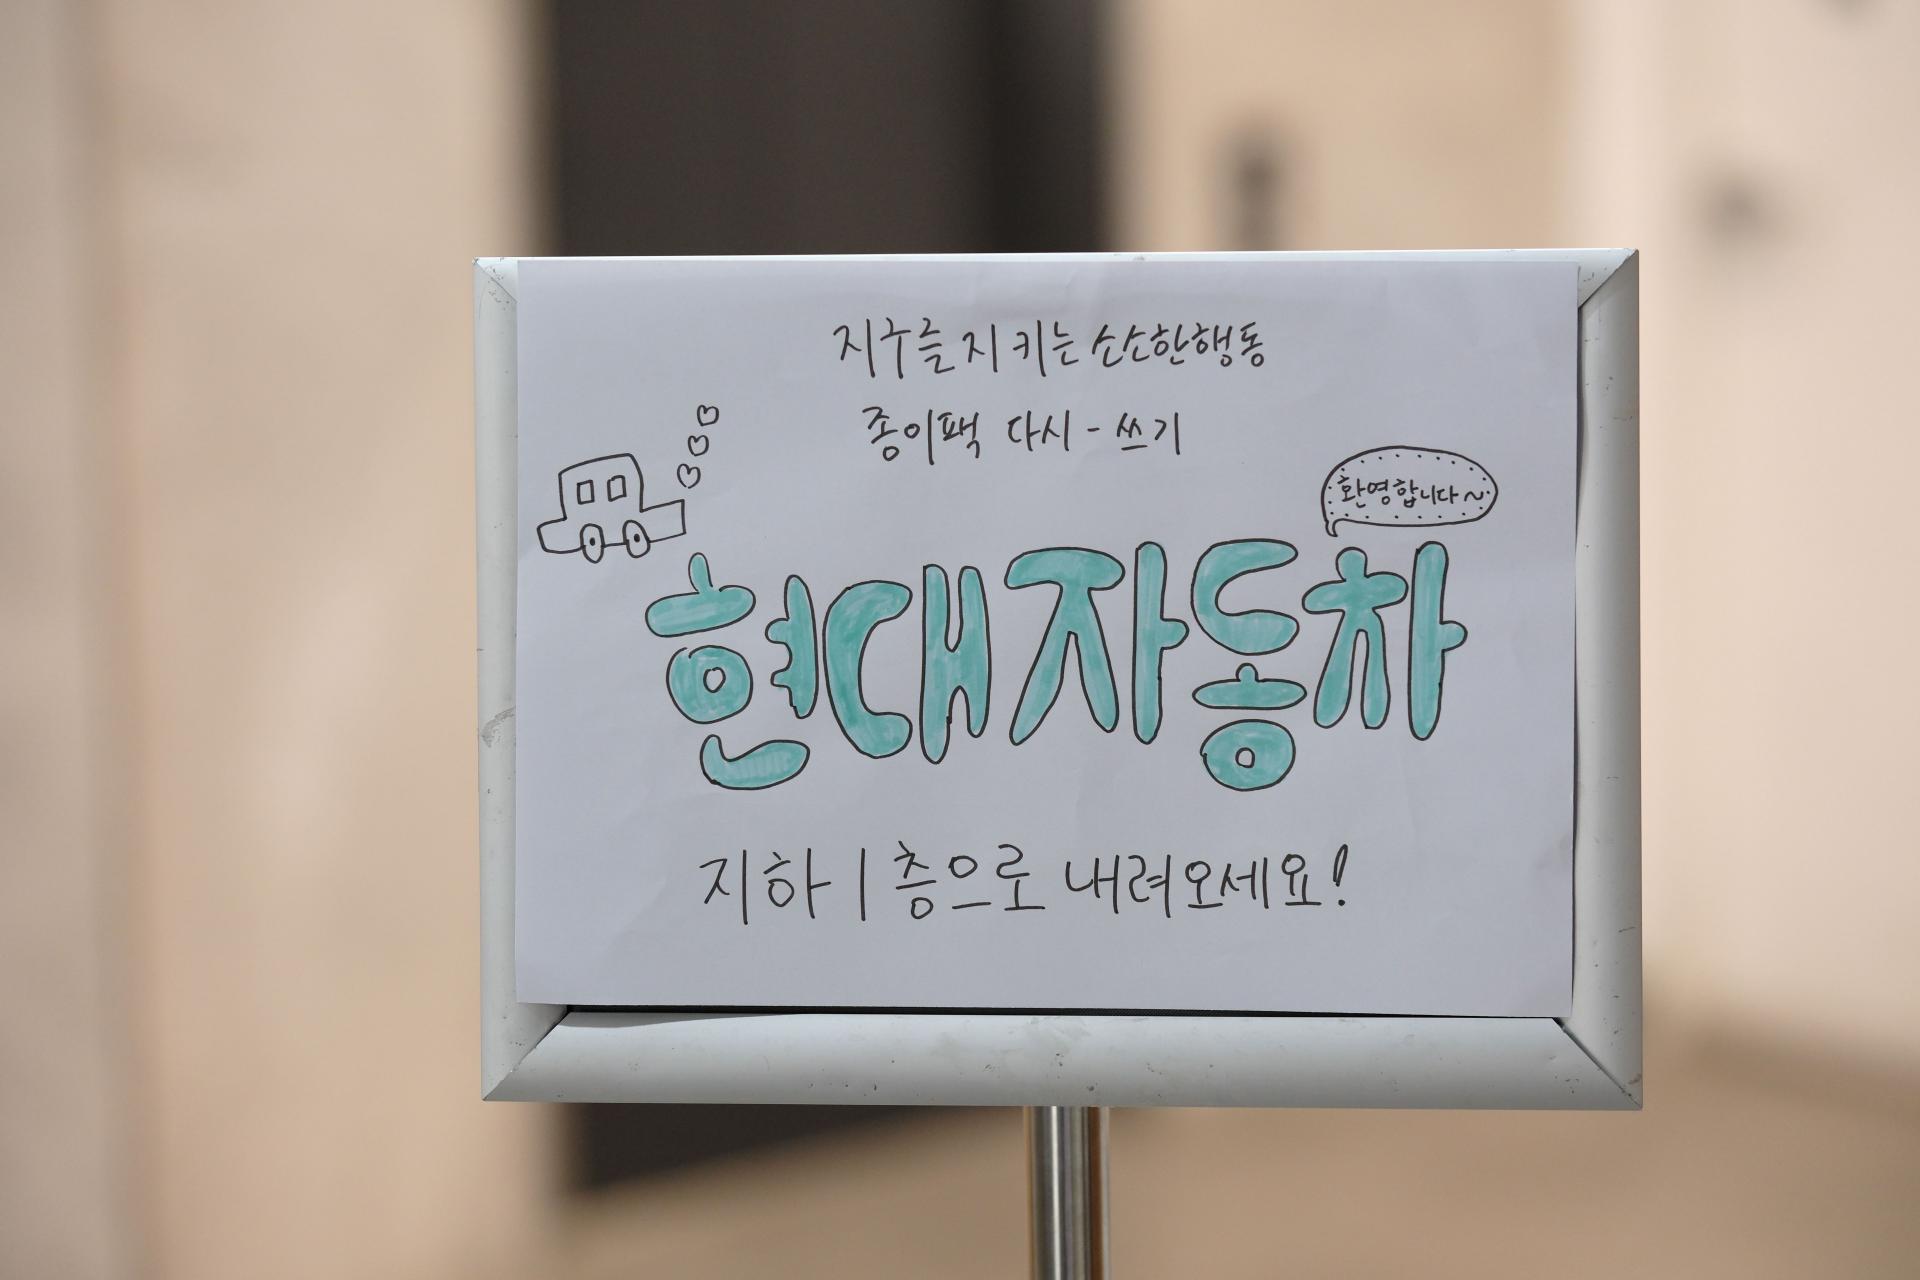 지구를 지키는 소소한행동
종이팩 다시-쓰기
환영합니다~
현대자동차
지하 1층으로 내려오세요!